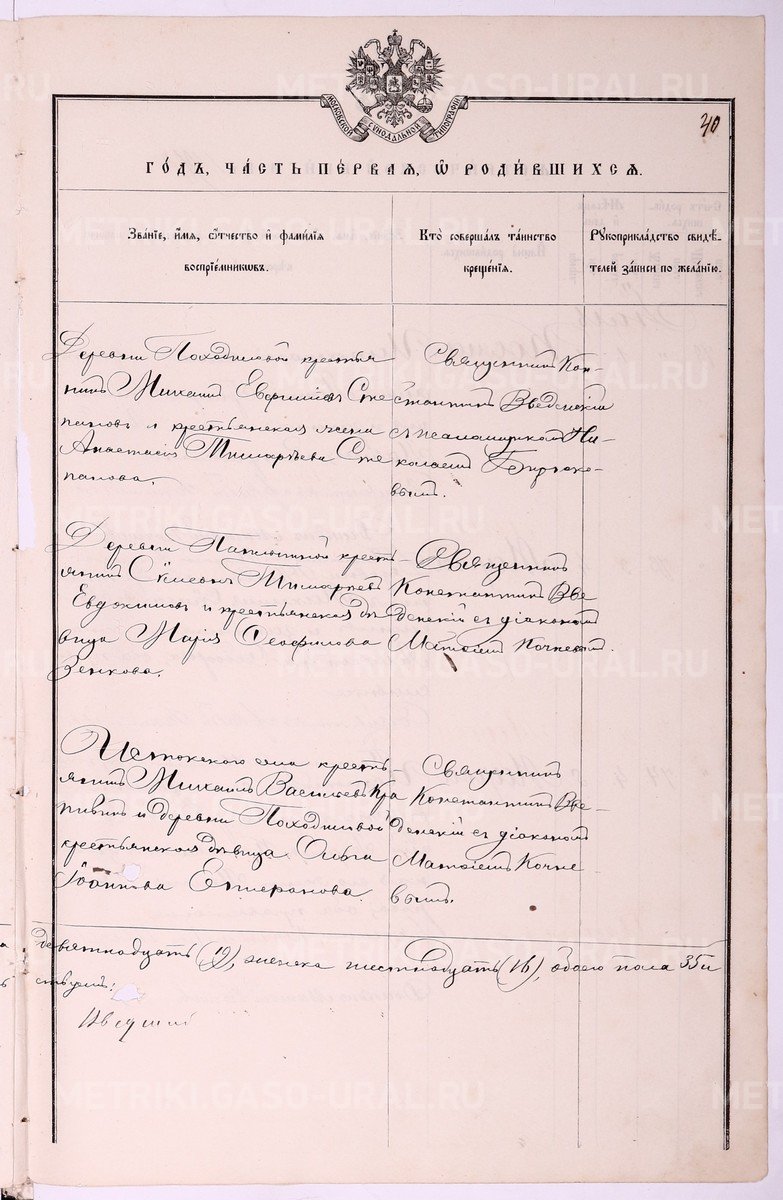 МОСКОВСКОЙ СѴНОДАЛЬНОЙ ТИПОГРАФІИ
40
ГО́ДЪ, ЧА́СТЬ ПЕ́РВАЯ, Ѽ РОДИ́ВШИХСЯ.
Зва́нїе, и҆́мя, ѻ҆́тчество и҆ фами́лїя
воспрїе́мникѡвъ.
Кто̀ соверша́лъ та́инство
креще́нїя.
Рꙋкоприкла́дство свидѣ́-
телей за́писи по жела́нїю.
Деревни Походиловой крестья
нинъ Михаилъ Евфимовъ Сте
пановъ и крестьянская жена
Анастасія Тимофѣева Сте
панова.
Священникъ Кон-
стантинъ Введенскій
съ псаломщикомъ Ни-
колаемъ Бирюко-
вымъ.
Деревни крестъ-
янинъ Сѵмеонъ
Евдокимовъ и крестьянская дѣ
вица Марія Ѳеофилова
Зенкова.
Священникъ
Константинъ Вве
денскій съ діакономъ
Матѳіемъ Кочневымъ.
Истокскаго села крестъ
янинъ Михаилъ Васильевъ Кра
пивинъ и деревни Походиловой
крестьянская дѣвица Ольга
Іоаннова
Священникъ
Константинъ Вве-
денскій съ діакономъ
Матѳіемъ Кочне
вымъ.
девятнадцать (19), женска шестнадцать (16), обоего пола 35и